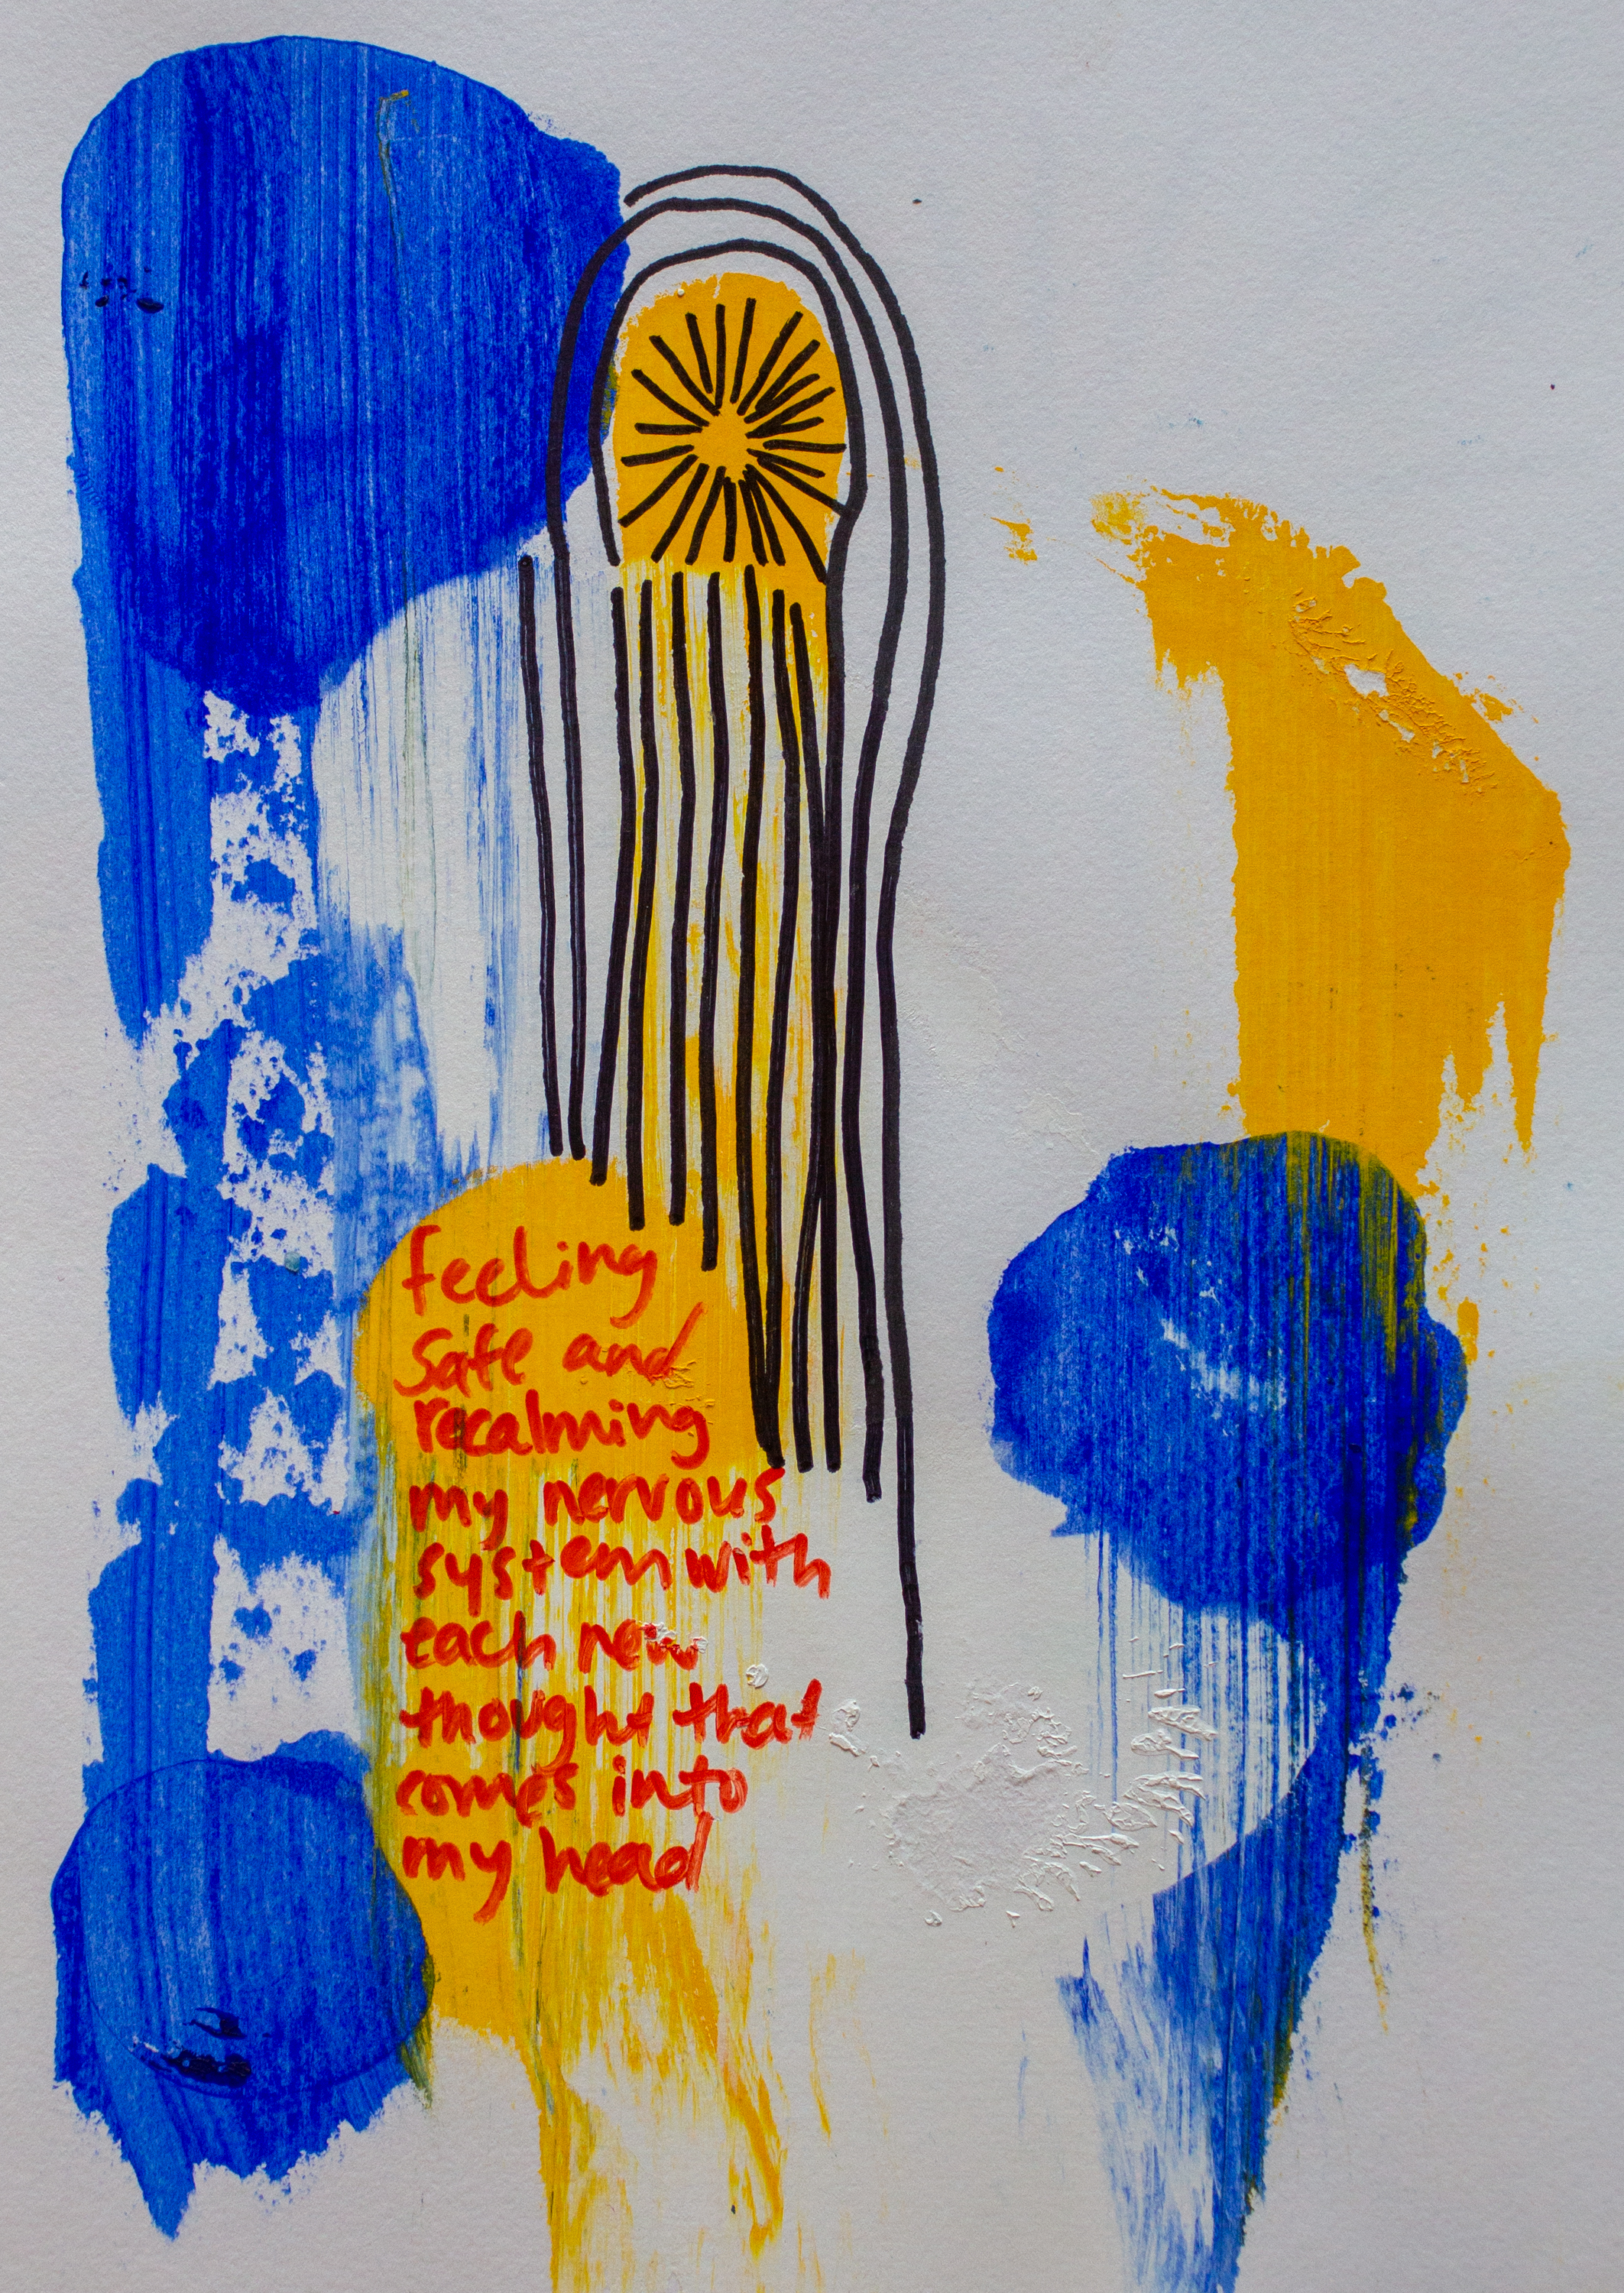 feeling
safe and
recalming
my nervous
system with
each new
thought that
comes into
my head